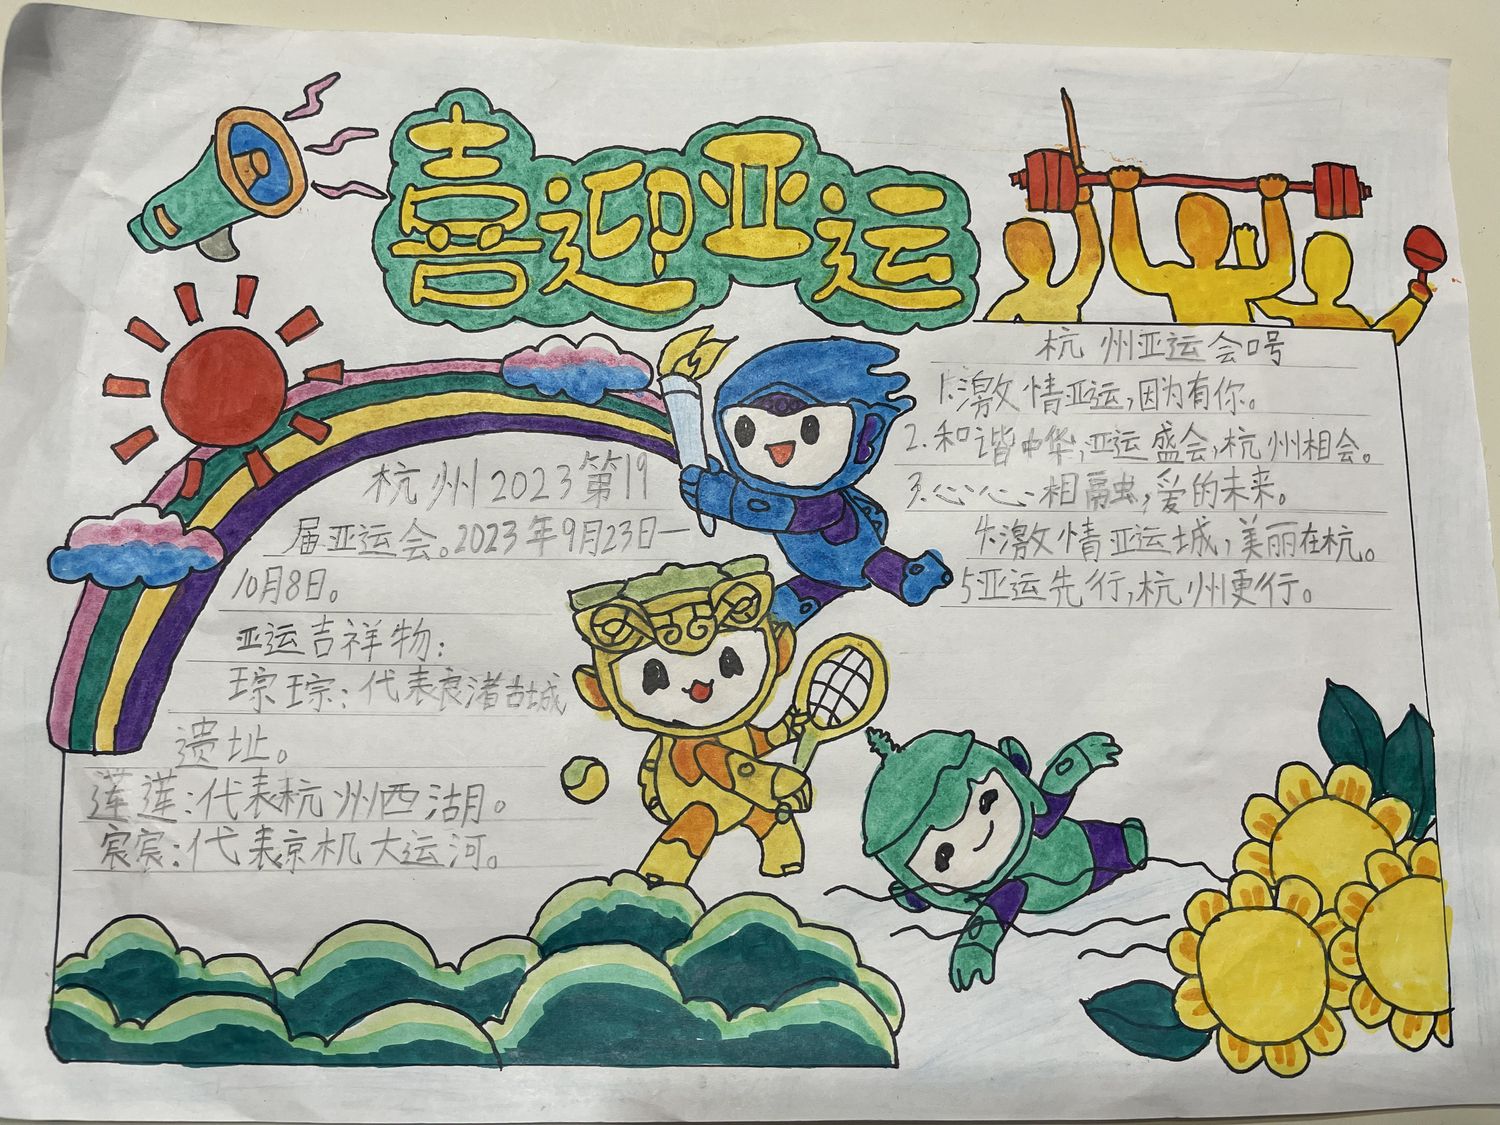 喜迎亚运
杭州2023第19
届亚运会。2023年9月23日—
10月8日。
亚运吉祥物：
琮琮：代表良渚古城
遗址。
莲莲：代表杭州西湖。
宸宸：代表京机大运河。
杭州亚运会口号
1.激情亚运，因为有你。
2.和谐中华，亚运盛会，杭州相会。
3.心心相融，爱的未来。
4.激情亚运城，美丽在杭。
5亚运先行，杭州更行。